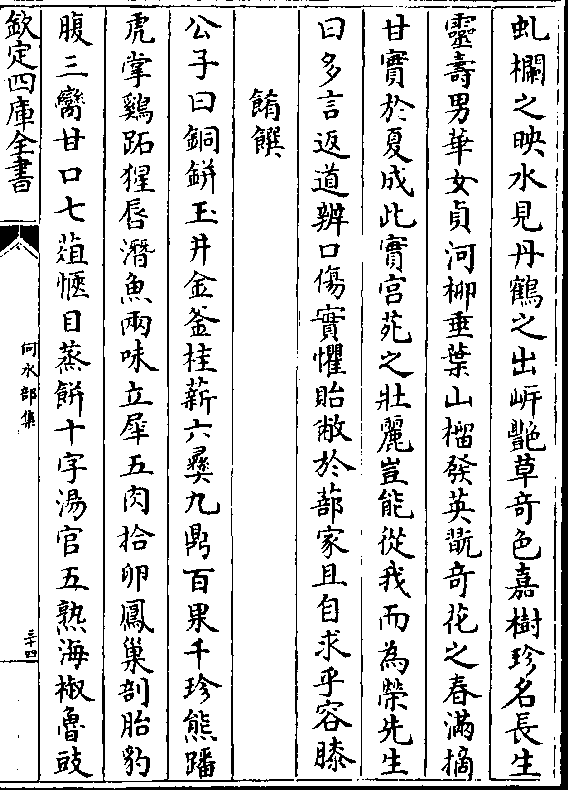 虬欄之映水見丹鶴之出岍艷草奇色嘉樹珍名長生
靈壽男華女貞河柳垂葉山榴發英翫奇花之春滿摘
甘實於夏成此實宫苑之壯麗豈能從我而為榮先生
曰多言返道辨口傷實懼貽敝於蔀家且自求乎容膝
餚饌
公子曰銅鉼玉井金釜桂薪六彛九鼎百果千珍熊蹯
虎掌鷄跖猩唇潛魚兩味立犀五肉拾卵鳳巢剖胎豹
腹三臠甘口七葅愜目蒸餅十字湯官五熟海椒魯豉
欽定四庫全書
何水部集
三十四